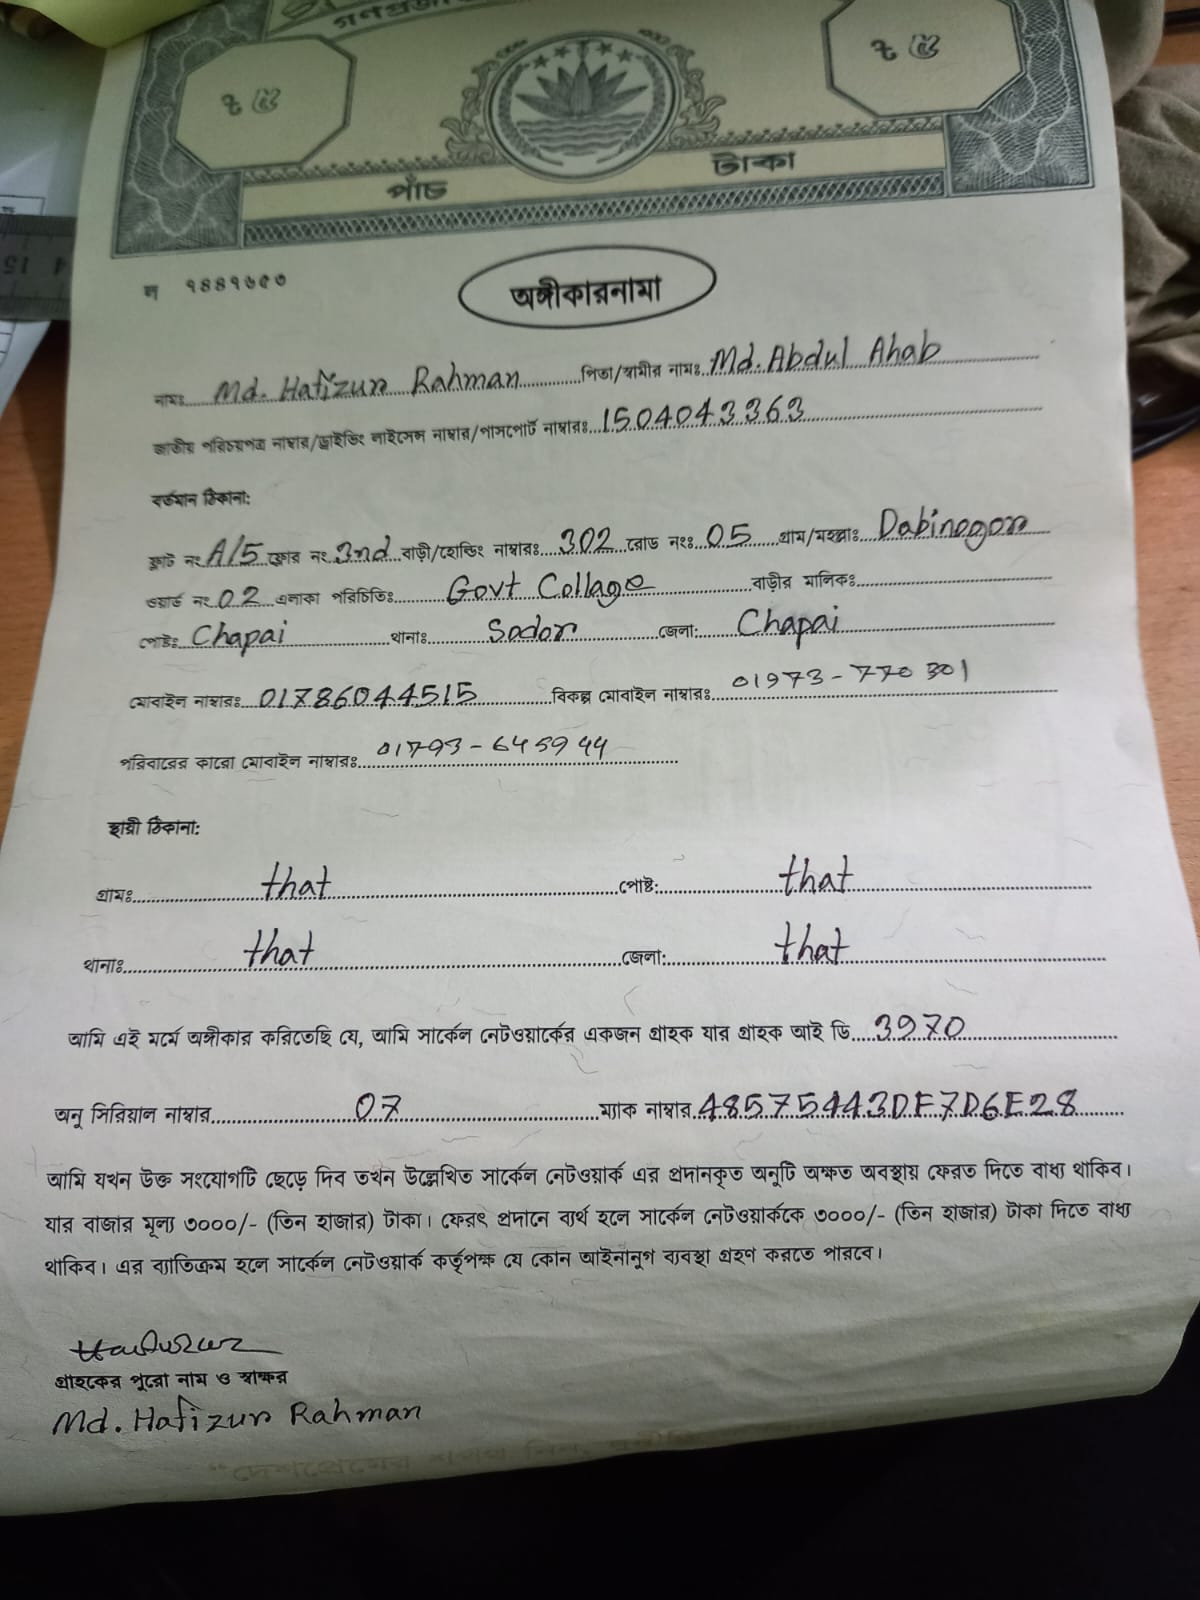 গণপ্রজা
৳ ৫ ৳ ৫
পাঁচ টাকা
অঙ্গীকারনামা
নামঃ Md. Hafizur Rahman পিতা/স্বামীর নামঃ Md. Abdul Ahab
জাতীয় পরিচয়পত্র নাম্বার/ড্রাইভিং লাইসেন্স নাম্বার/পাসপোর্ট নাম্বারঃ 1504043363
বর্তমান ঠিকানা:
ফ্লাট নং A/5 ফ্লোর নং 3nd বাড়ী/হোল্ডিং নাম্বারঃ 302 রোড নংঃ 05 গ্রাম/মহল্লাঃ Dabinogor
ওয়ার্ড নং 02 এলাকা পরিচিতিঃ Govt Collage বাড়ীর মালিকঃ
পোষ্টঃ Chapai থানাঃ Sodor জেলা: Chapai
মোবাইল নাম্বারঃ 01786044515 বিকল্প মোবাইল নাম্বারঃ 01973-770301
পরিবারের কারো মোবাইল নাম্বারঃ 01793-645944
স্থায়ী ঠিকানা:
গ্রামঃ that পোষ্ট: that
থানাঃ that জেলা: that
আমি এই মর্মে অঙ্গীকার করিতেছি যে, আমি সার্কেল নেটওয়ার্কের একজন গ্রাহক যার গ্রাহক আই ডি 3970
অনু সিরিয়াল নাম্বার 07 ম্যাক নাম্বার 485754443DF7D6E28
আমি যখন উক্ত সংযোগটি ছেড়ে দিব তখন উল্লেখিত সার্কেল নেটওয়ার্ক এর প্রদানকৃত অনুটি অক্ষত অবস্থায় ফেরত দিতে বাধ্য থাকিব।
যার বাজার মূল্য ৩০০০/- (তিন হাজার) টাকা। ফেরৎ প্রদানে ব্যর্থ হলে সার্কেল নেটওয়ার্ককে ৩০০০/- (তিন হাজার) টাকা দিতে বাধ্য
থাকিব। এর ব্যাতিক্রম হলে সার্কেল নেটওয়ার্ক কর্তৃপক্ষ যে কোন আইনানুগ ব্যবস্থা গ্রহণ করতে পারবে।
গ্রাহকের পুরো নাম ও স্বাক্ষর
Md. Hafizur Rahman